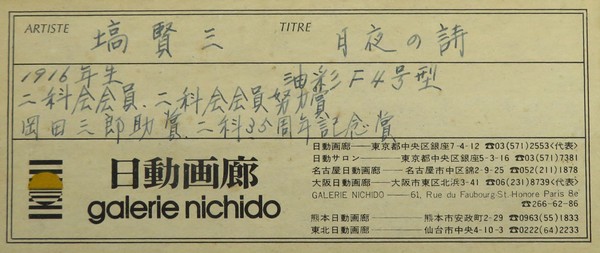 ARTISTE 塙賢三 TITRE 月夜の詩
1916年生 油彩F4号型
二科会会員、二科会会員努力賞
岡田三郎助賞、二科35周年記念賞
日動画廊
galerie nichido
日動画廊――東京都中央区銀座7-4-12 ☎03(571)2553<代表>
日動サロン――東京都中央区銀座5-3-16 ☎03(571)7381
名古屋日動画廊――名古屋市中区錦2-9-25 ☎052(211)1878
大阪日動画廊――大阪市東区北浜3-41 ☎06(231)8739<代表>
GALERIE NICHIDO――61, Rue du Faubourg-St Honore Paris 8e
☎266-62-86
熊本日動画廊――熊本市安政町2-29 ☎0963(55)1833
東北日動画廊――仙台市中央4-10-3 ☎0222(64)2233